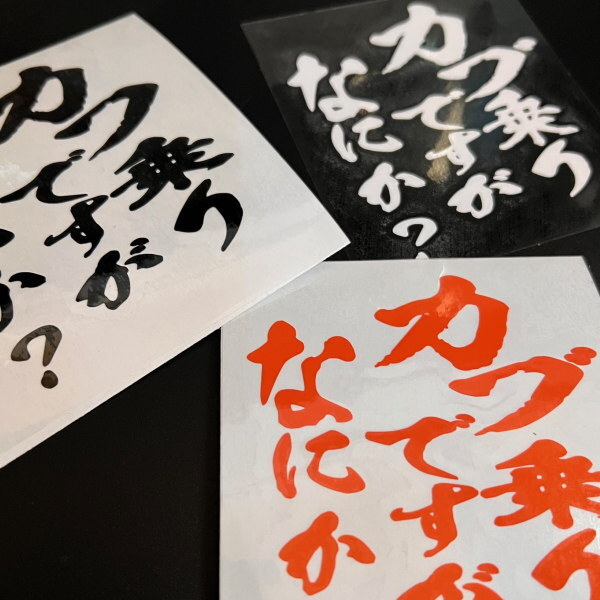 カブ乗り
ですが
か?
カブ乗り
ですが
なにか?
カブ乗り
ですが
なにか